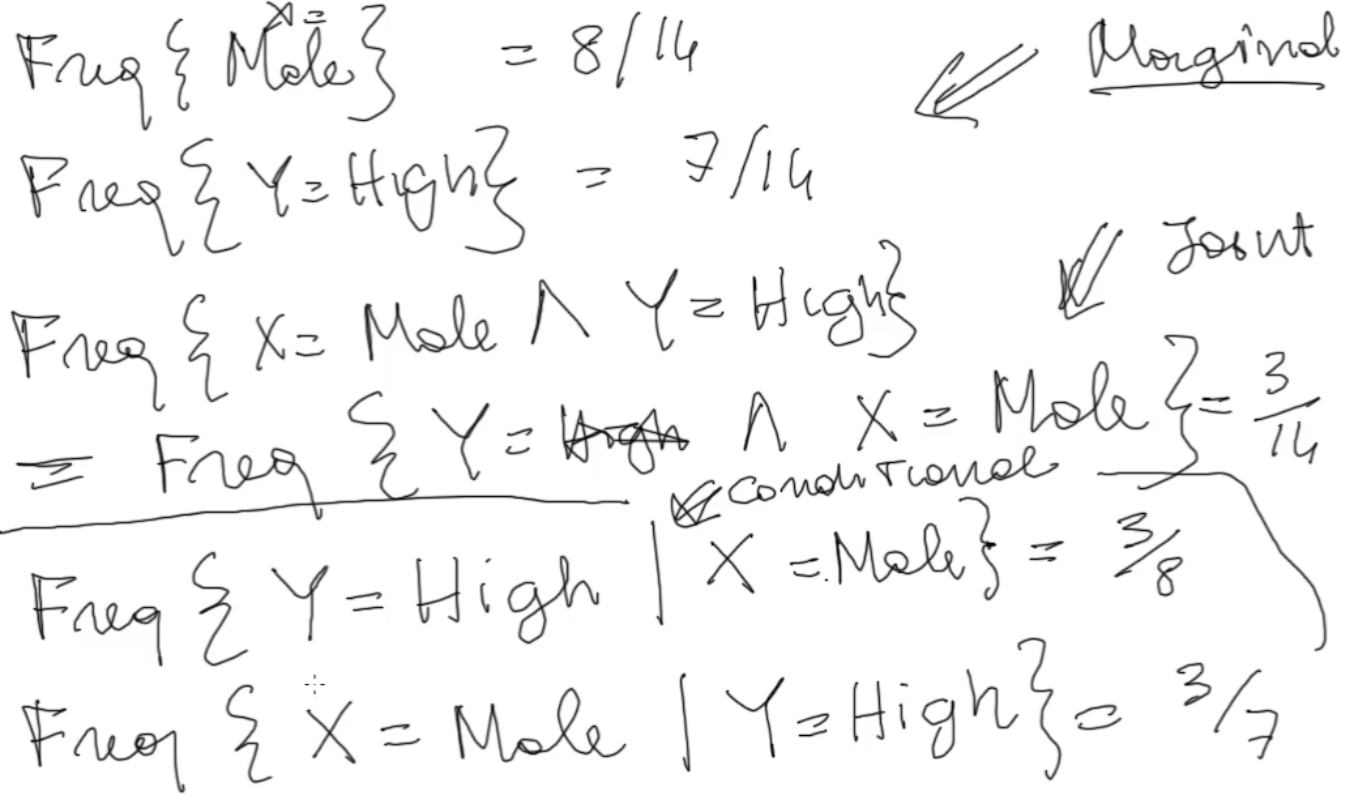 Freq { X = Male } = 8/14 Marginal
Freq { Y = High } = 7/14
Joint
Freq { X = Male ∧ Y = High }
= Freq { Y = High ∧ X = Male } = 3/14
conditional
Freq { Y = High | X = Male } = 3/8
Freq { X = Male | Y = High } = 3/7